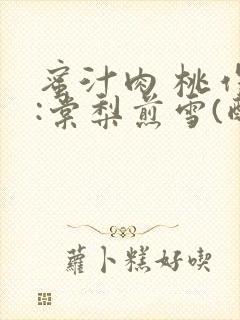 蜜汁肉桃作
:棠梨煎雪(
蘿卜糕好喫